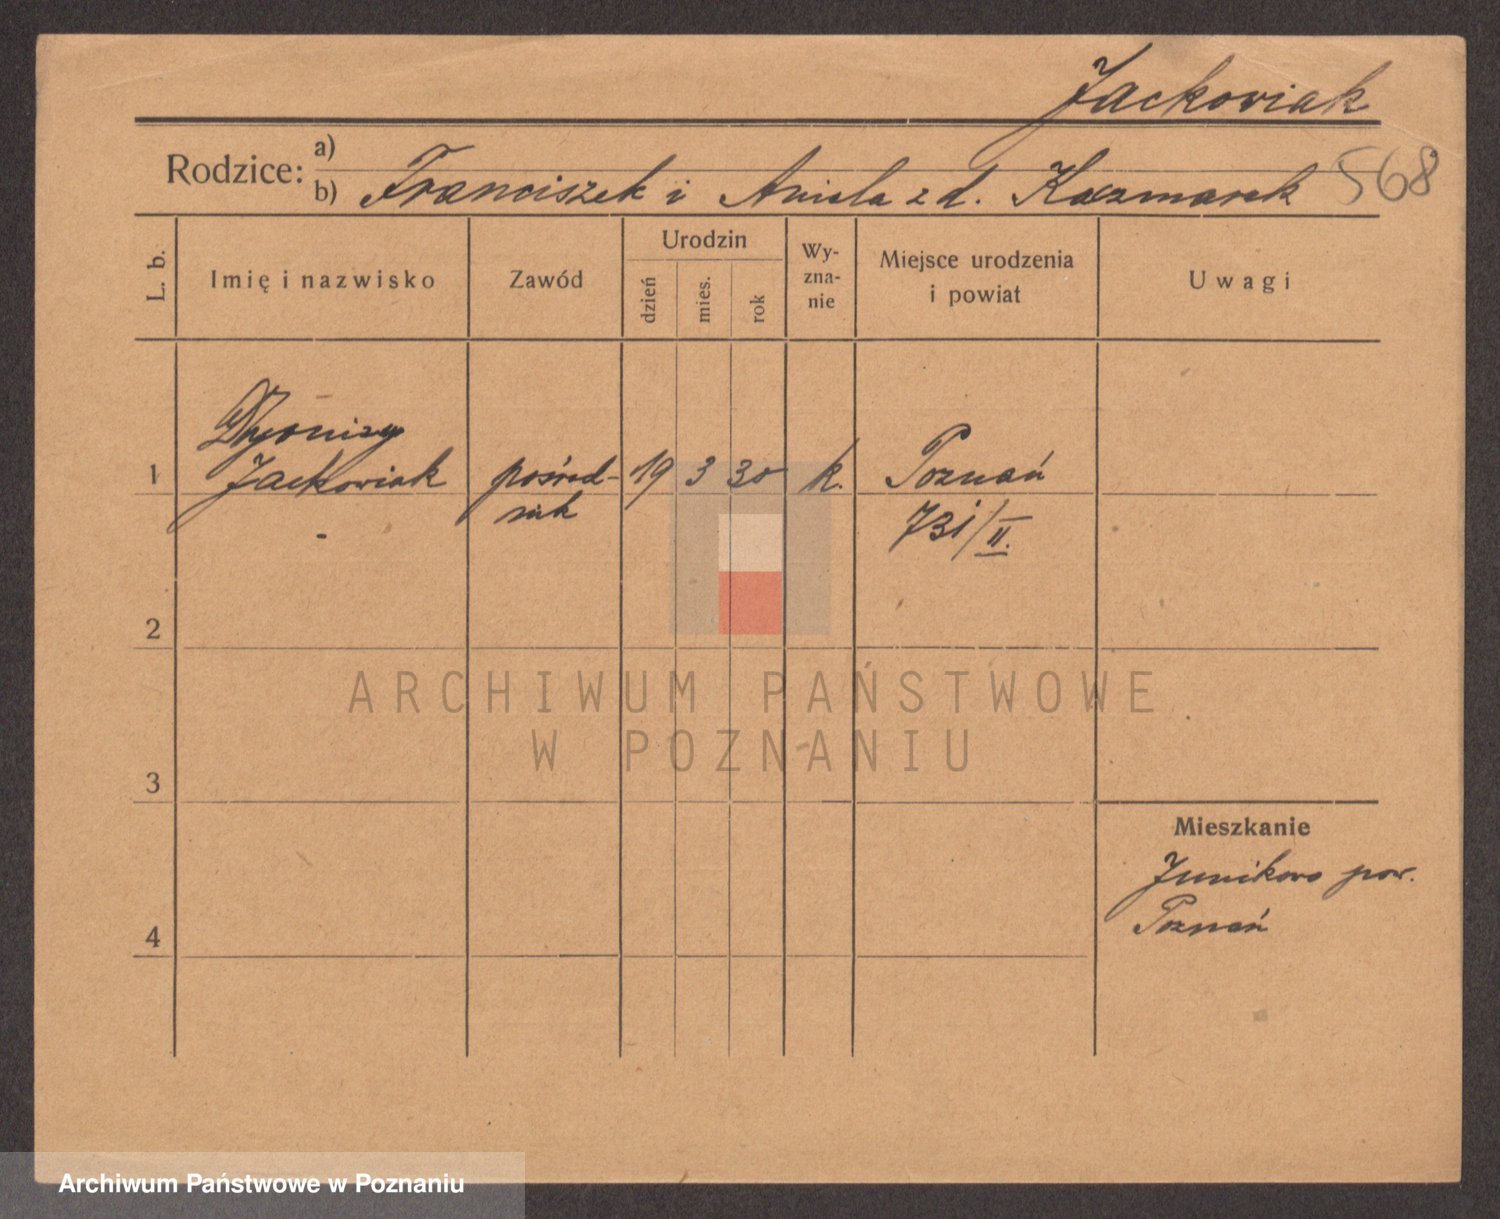 Jackowiak
Rodzice: a)
b) Franciszek i Aniela z d. Kaczmarek 568
L. b.
Imię i nazwisko
Zawód
Urodzin
dzień
mies.
rok
Wy-
zna-
nie
Miejsce urodzenia
i powiat
Uwagi
Dyonizy
1 Jackowiak pośred- 19 3 30 k. Poznań
nik 731/II.
2
ARCHIWUM PAŃSTWOWE
W POZNANIU
3
Mieszkanie
Junikowo pow.
Poznań
4
Archiwum Państwowe w Poznaniu